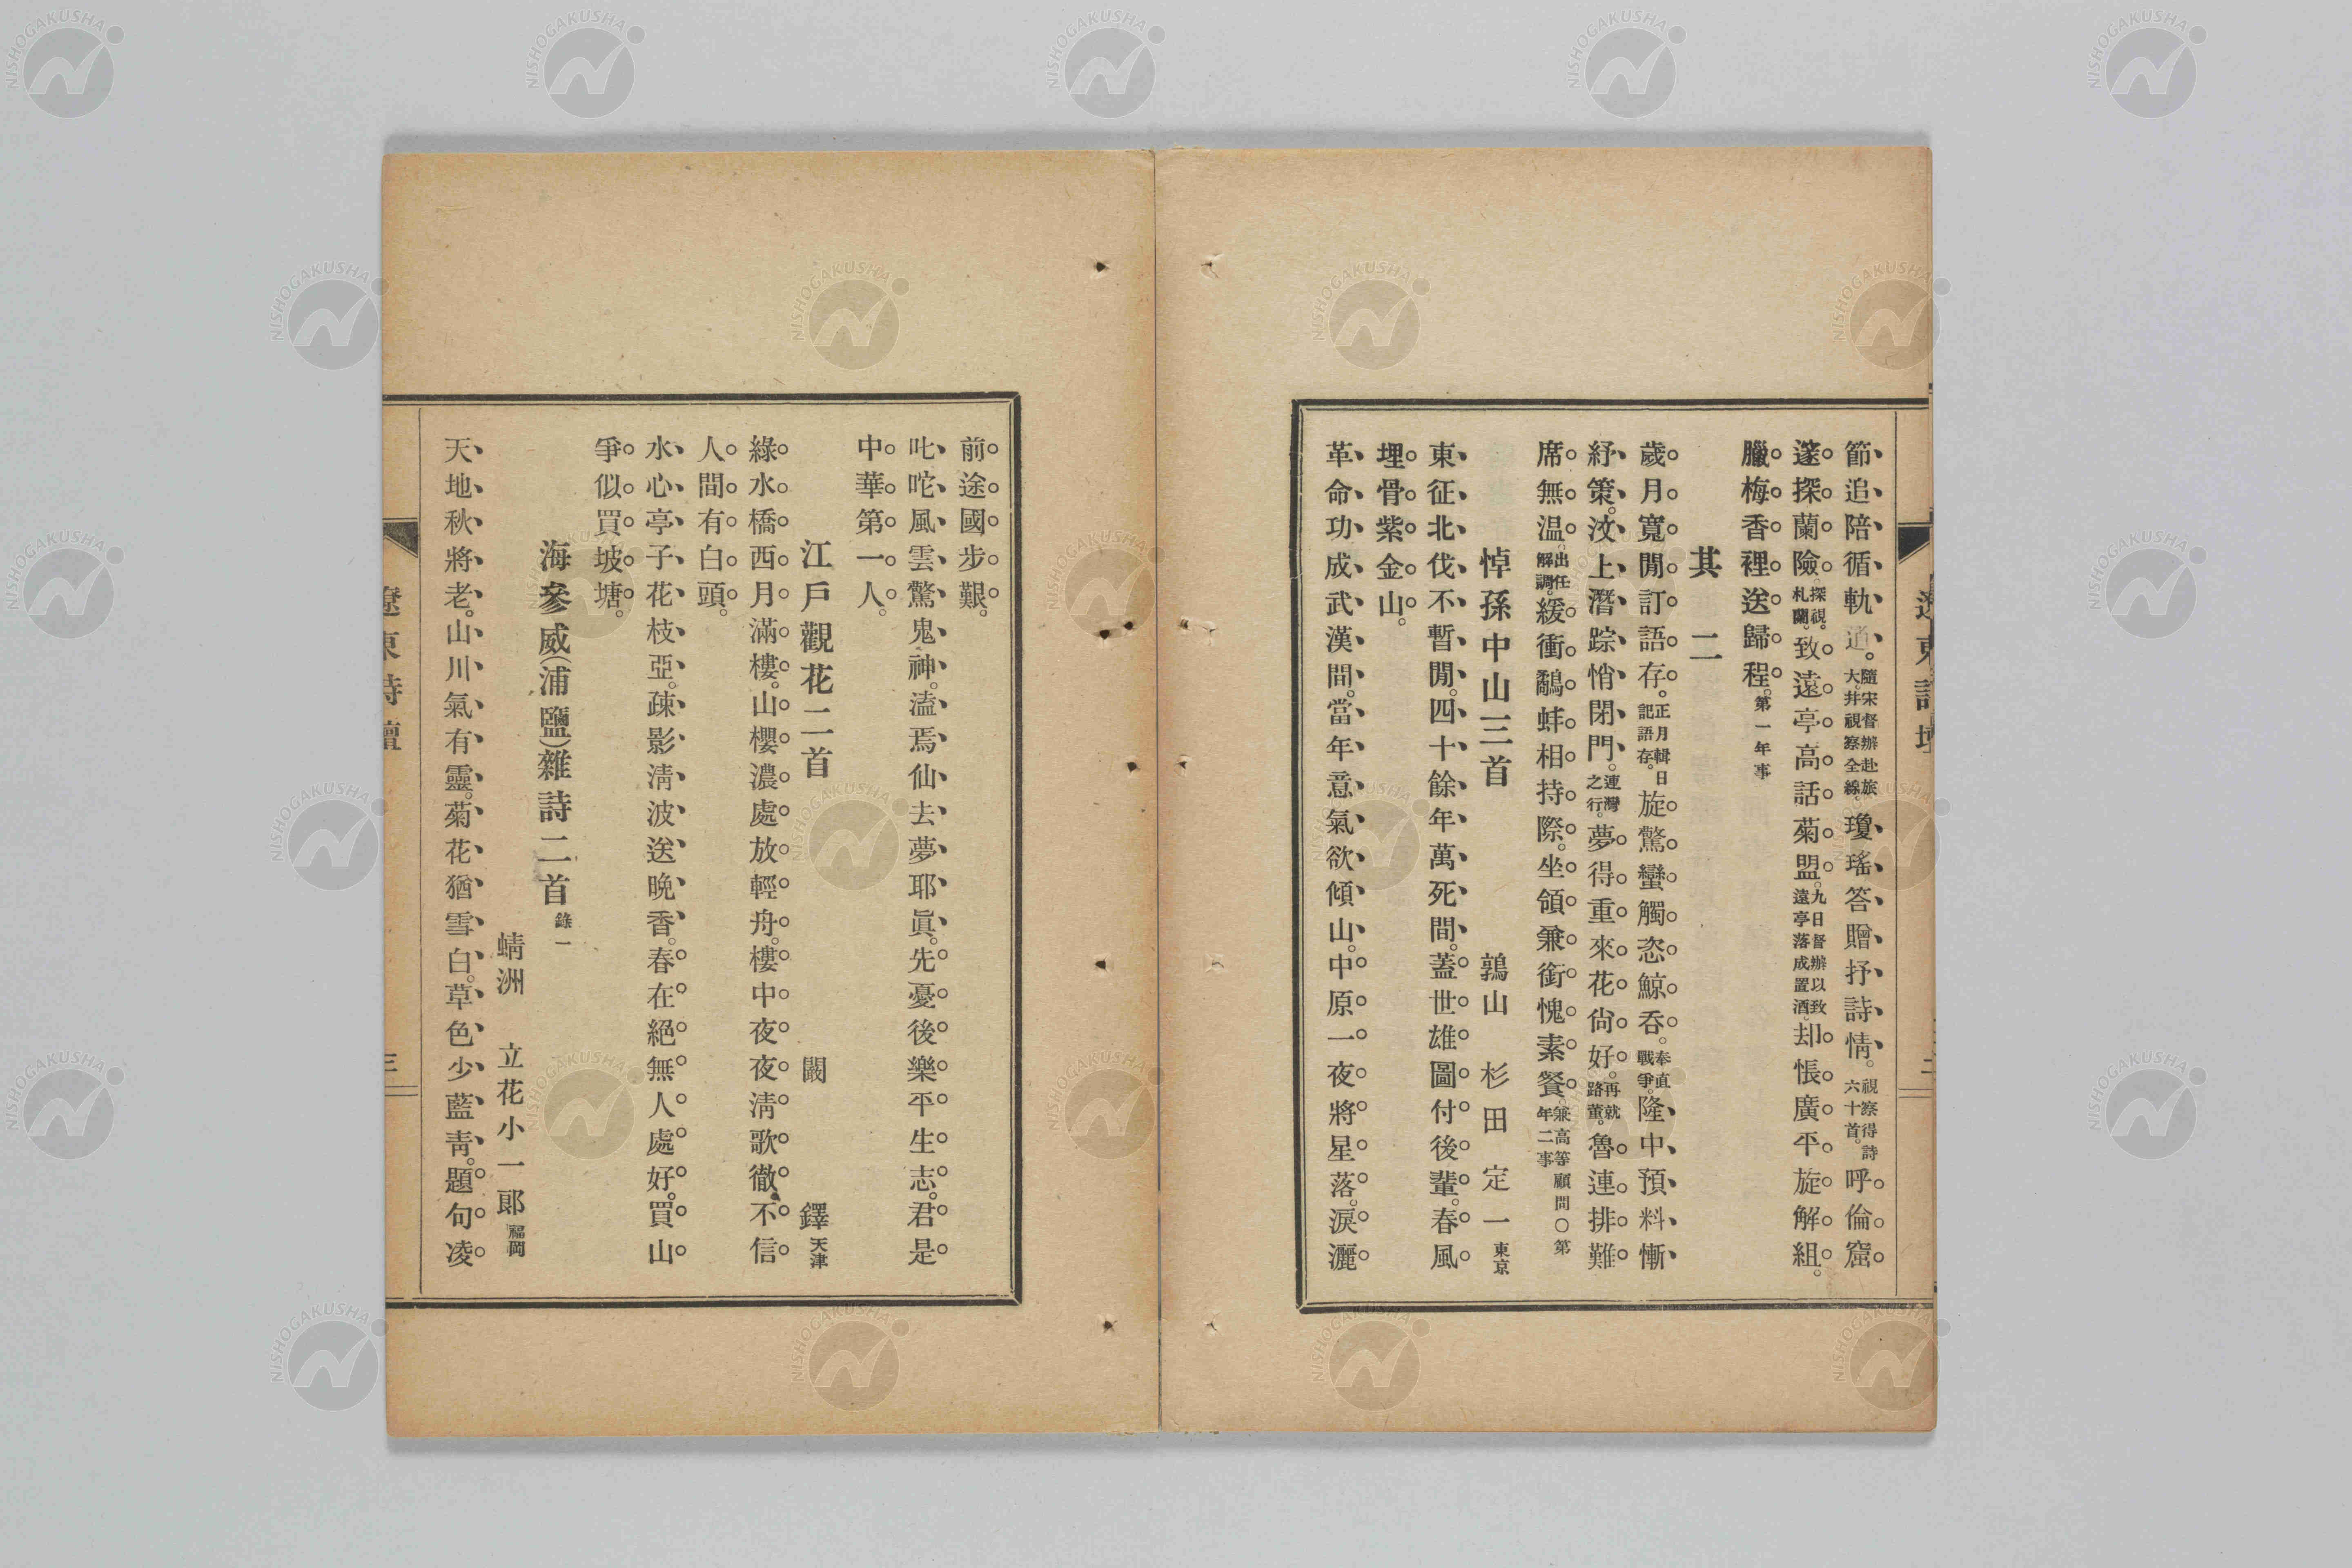 節追陪循軌道。隨宋督辦赴旅大。井視察全線。瓊瑤答贈抒詩情。視察得詩六十首。呼倫窟
邃探蘭險。探視札蘭。致遠亭高話菊盟。九日督辦以致遠亭落成置酒。却悵廣平旋解組。
臘梅香裡送歸程。第一年事
其二
歲月寬閒訂語存。正月輯日記語存。旋驚蠻觸恣鯨呑。奉直戰爭。隆中預料慚
紓策。汶上潛踪悄閉門。連灣之行。夢得重來花尙好。再就路董。魯連排難
席無温。出任解調。緩衝鷸蚌相持際。坐領兼銜愧素餐。兼高等顧問〇第年二事
悼孫中山三首 鶉山 杉田定一 東京
東征北伐不暫閒。四十餘年萬死間。蓋世雄圖付後輩。春風
埋骨紫金山。
革命功成武漢間。當年意氣欲傾山。中原一夜將星落。淚灑
前途國步艱。
叱咤風雲驚鬼神。溘焉仙去夢耶眞。先憂後樂平生志。君是
中華第一人。
江戶觀花二首 闞鐸 天津
綠水橋西月滿樓。山櫻濃處放輕舟。樓中夜夜淸歌徹。不信
人間有白頭。
水心亭子花枝亞。疎影淸波送晩香。春在絕無人處好。買山
爭似買坡塘。
海參威(浦鹽)雜詩二首 錄一
蜻洲 立花小一郞 福岡
天地秋將老。山川氣有靈。菊花猶雪白。草色少藍靑。題句凌
遼東詩壇
三